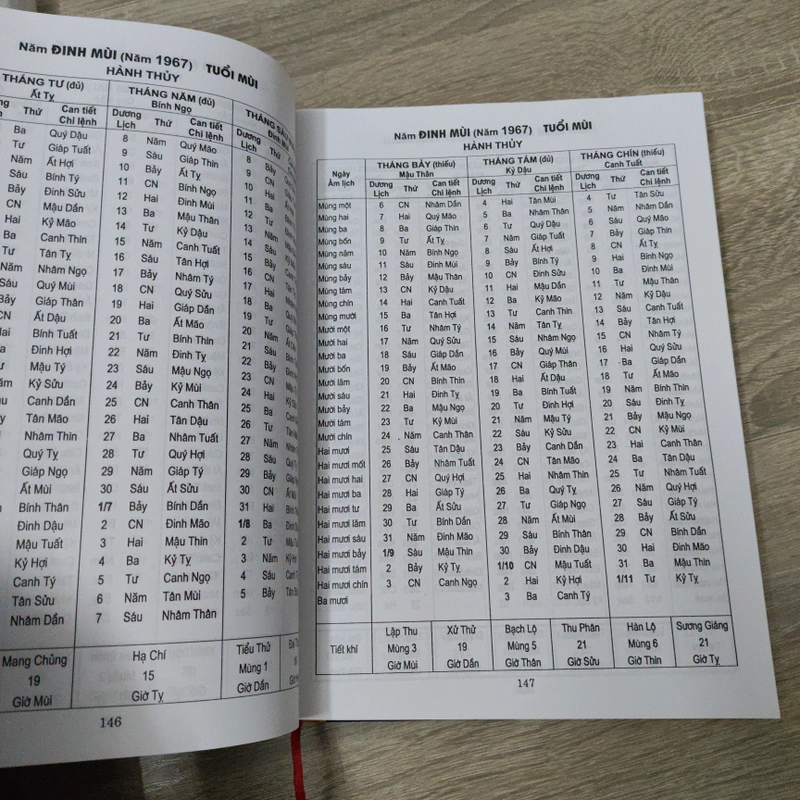 Năm ĐINH MÙI (Năm 1967) TUỔI MÙI
HÀNH THỦY
THÁNG TƯ (đủ) THÁNG NĂM (đủ) THÁNG
Ất Tỵ Bính Ngọ
Thứ Can tiết Chi lệnh Dương Lịch Thứ Can tiết Chi lệnh Dương Lịch Thứ
Ba Quý Dậu 8 Năm Quý Mão 8 Bảy
Tư Giáp Tuất 9 Sáu Giáp Thìn 9 CN
Năm Ất Hợi 10 Bảy Ất Tỵ 10 Hai
Sáu Bính Tý 11 CN Bính Ngọ 11 Ba
Bảy Đinh Sửu 12 Hai Đinh Mùi 12 Tư
CN Mậu Dần 13 Ba Mậu Thân 13 Năm
Hai Kỷ Mão 14 Tư Kỷ Dậu 14 Sáu
Ba Canh Thìn 15 Năm Canh Tuất 15 Bảy
Tư Tân Tỵ 16 Sáu Tân Hợi 16 CN
Năm Nhâm Ngọ 17 Bảy Nhâm Tý 17 Hai
Sáu Quý Mùi 18 CN Quý Sửu 18 Ba
Bảy Giáp Thân 19 Hai Giáp Dần 19 Tư
CN Ất Dậu 20 Ba Ất Mão 20 Năm
Hai Bính Tuất 21 Tư Bính Thìn 21 Sáu
Ba Đinh Hợi 22 Năm Đinh Tỵ 22 Bảy
Tư Mậu Tý 23 Sáu Mậu Ngọ 23 CN
Kỷ Sửu 24 Bảy Kỷ Mùi 24 Hai
Canh Dần 25 CN Canh Thân 25 Ba
Tân Mão 26 Hai Tân Dậu 26 Tư
Nhâm Thìn 27 Ba Nhâm Tuất 27 Năm
Quý Tỵ 28 Tư Quý Hợi 28 Sáu
Giáp Ngọ 29 Năm Giáp Tý 29 Bảy
Ất Mùi 30 Sáu Ất Sửu 30 CN
Bính Thân 1/7 Bảy Bính Dần 31 Hai
Đinh Dậu 2 CN Đinh Mão 1/8 Ba
Mậu Tuất 3 Hai Mậu Thìn 2 Tư
Kỷ Hợi 4 Ba Kỷ Tỵ 3 Năm
Canh Tý 5 Tư Canh Ngọ 4 Sáu
Tân Sửu 6 Năm Tân Mùi 5 Bảy
Nhâm Dần 7 Sáu Nhâm Thân
Mang Chủng Hạ Chí Tiểu Thử
19 15 Mùng 1
Giờ Mùi Giờ Tỵ Giờ Dần
146
Năm ĐINH MÙI (Năm 1967) TUỔI MÙI
HÀNH THỦY
Ngày Âm lịch THÁNG BẢY (thiếu) THÁNG TÁM (đủ) THÁNG CHÍN (thiếu)
Mậu Thân Kỷ Dậu Canh Tuất
Dương Lịch Thứ Can tiết Chi lệnh Dương Lịch Thứ Can tiết Chi lệnh Dương Lịch Thứ Can tiết Chi lệnh
Mùng một 6 CN Nhâm Dần 4 Hai Tân Mùi 4 Tư Tân Sửu
Mùng hai 7 Hai Quý Mão 5 Ba Nhâm Thân 5 Năm Nhâm Dần
Mùng ba 8 Ba Giáp Thìn 6 Tư Quý Dậu 6 Sáu Quý Mão
Mùng bốn 9 Tư Ất Tỵ 7 Năm Giáp Tuất 7 Bảy Giáp Thìn
Mùng năm 10 Năm Bính Ngọ 8 Sáu Ất Hợi 8 CN Ất Tỵ
Mùng sáu 11 Sáu Đinh Mùi 9 Bảy Bính Tý 9 Hai Bính Ngọ
Mùng bảy 12 Bảy Mậu Thân 10 CN Đinh Sửu 10 Ba Đinh Mùi
Mùng tám 13 CN Kỷ Dậu 11 Hai Mậu Dần 11 Tư Mậu Thân
Mùng chín 14 Hai Canh Tuất 12 Ba Kỷ Mão 12 Năm Kỷ Dậu
Mùng mười 15 Ba Tân Hợi 13 Tư Canh Thìn 13 Sáu Canh Tuất
Mười một 16 Tư Nhâm Tý 14 Năm Tân Tỵ 14 Bảy Tân Hợi
Mười hai 17 Năm Quý Sửu 15 Sáu Nhâm Ngọ 15 CN Nhâm Tý
Mười ba 18 Sáu Giáp Dần 16 Bảy Quý Mùi 16 Hai Quý Sửu
Mười bốn 19 Bảy Ất Mão 17 CN Giáp Thân 17 Ba Giáp Dần
Mười lăm 20 CN Bính Thìn 18 Hai Ất Dậu 18 Tư Ất Mão
Mười sáu 21 Hai Đinh Tỵ 19 Ba Bính Tuất 19 Năm Bính Thìn
Mười bảy 22 Ba Mậu Ngọ 20 Tư Đinh Hợi 20 Sáu Đinh Tỵ
Mười tám 23 Tư Kỷ Mùi 21 Năm Mậu Tý 21 Bảy Mậu Ngọ
Mười chín 24 Năm Canh Thân 22 Sáu Kỷ Sửu 22 CN Kỷ Mùi
Hai mươi 25 Sáu Tân Dậu 23 Bảy Canh Dần 23 Hai Canh Thân
Hai mươi mốt 26 Bảy Nhâm Tuất 24 CN Tân Mão 24 Ba Tân Dậu
Hai mươi hai 27 CN Quý Hợi 25 Hai Nhâm Thìn 25 Tư Nhâm Tuất
Hai mươi ba 28 Hai Giáp Tý 26 Ba Quý Tỵ 26 Năm Quý Hợi
Hai mươi tư 29 Ba Ất Sửu 27 Tư Giáp Ngọ 27 Sáu Giáp Tý
Hai mươi lăm 30 Tư Bính Dần 28 Năm Ất Mùi 28 Bảy Ất Sửu
Hai mươi sáu 31 Năm Đinh Mão 29 Sáu Bính Thân 29 CN Bính Dần
Hai mươi bảy 1/9 Sáu Mậu Thìn 30 Bảy Đinh Dậu 30 Hai Đinh Mão
Hai mươi tám 2 Bảy Kỷ Tỵ 1/10 CN Mậu Tuất 31 Ba Mậu Thìn
Hai mươi chín 3 CN Canh Ngọ 2 Hai Kỷ Hợi 1/11 Tư Kỷ Tỵ
Ba mươi 3 Ba Canh Tý
Tiết khí Lập Thu Xử Thử Bạch Lộ Thu Phân Hàn Lộ Sương Giáng
Mùng 3 19 Mùng 5 21 Mùng 6 21
Giờ Mùi Giờ Dần Giờ Thân Giờ Sửu Giờ Thìn Giờ Tỵ
147